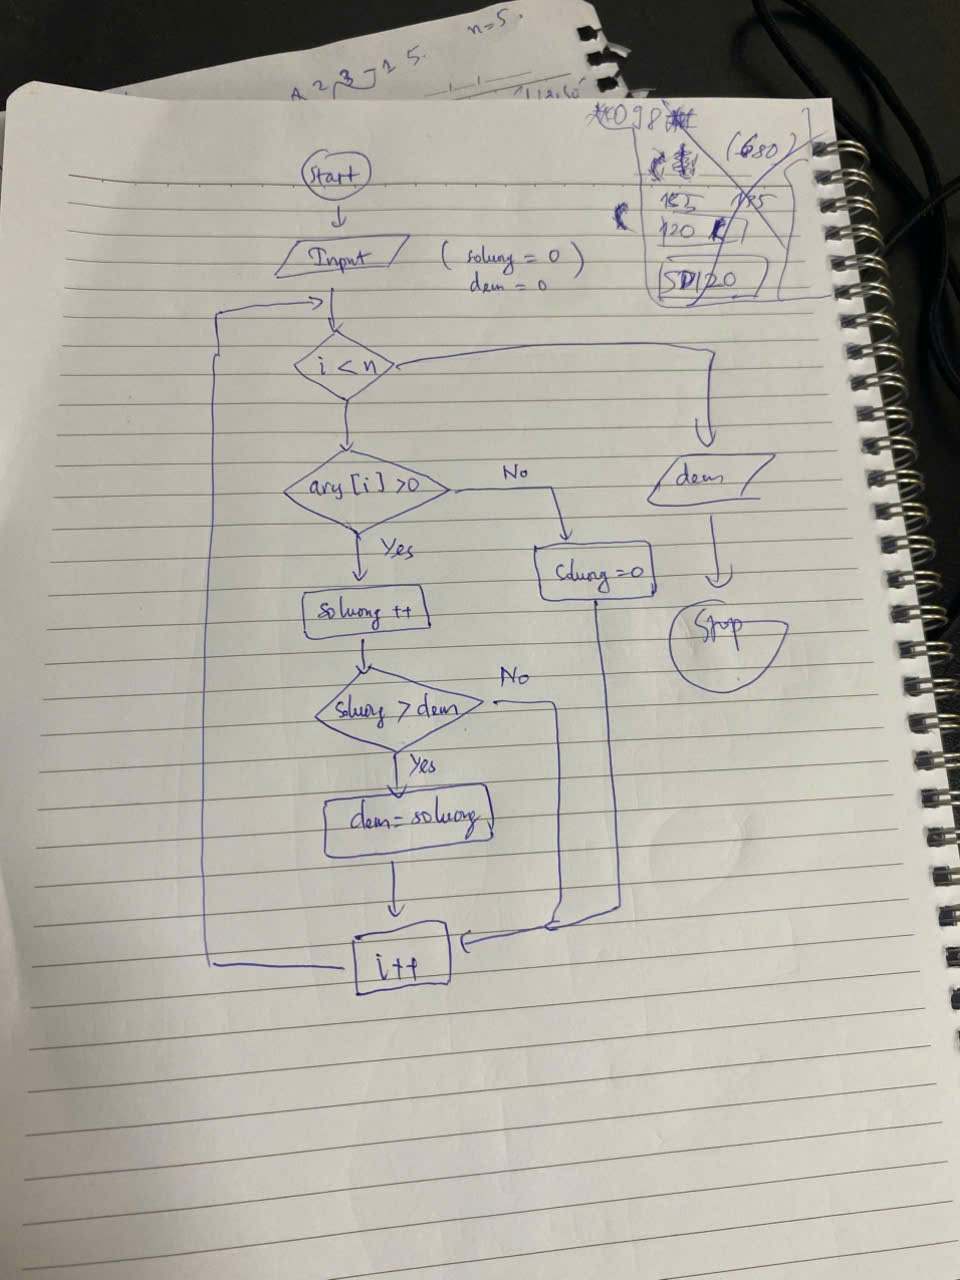 n=5.
A 2 3 -1 5.
098
(680)
165 175
120
SD120
Start
Input
(soluong = 0)
dem = 0
i < n
ary[i] >0
No
dem
Yes
Soluong =0
soluong ++
Stop
No
Soluong > dem
Yes
dem= soluong
i++